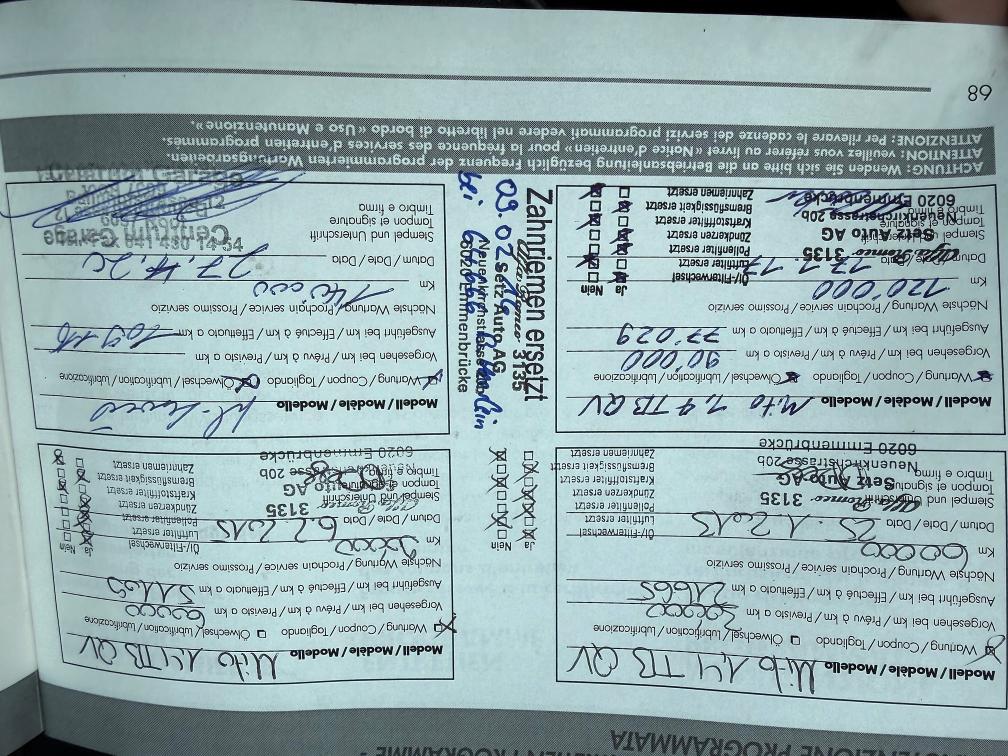 MÄSSIGEN PROGRAMME -
TENZIONE PROGRAMMATA
Modell / Modèle / Modello Mito 1.4 TB QV
Wartung / Tagliando / Coupon Ölwechsel / Lubrification / Lubrificazione
Vorgesehen bei km / Prévu à km / Previsto a km 30000
Ausgeführt bei km / Effectué à km / Effettuato a km 21665
Nächste Wartung / Prochain service / Prossimo servizio
Km 60000
Datum / Date / Data 25.1.2013
Stempel und Unterschrift
Tampon et signature
Timbro e firma
Alfa Romeo 3135
Setz Auto AG
Neuenkirchstrasse 20b
6020 Emmenbrücke
Ja Nein
Öl-/Filterwechsel
Luftfilter ersetzt
Pollenfilter ersetzt
Zündkerzen ersetzt
Kraftstofffilter ersetzt
Bremsflüssigkeit ersetzt
Zahnriemen ersetzt
Modell / Modèle / Modello Mito 1.4 TB QV
Wartung / Tagliando / Coupon Ölwechsel / Lubrification / Lubrificazione
Vorgesehen bei km / Prévu à km / Previsto a km 60000
Ausgeführt bei km / Effectué à km / Effettuato a km
Nächste Wartung / Prochain service / Prossimo servizio
Km 90000
Datum / Date / Data 6.2.2015
Stempel und Unterschrift
Tampon et signature
Timbro e firma
Alfa Romeo 3135
Setz Auto AG
Neuenkirchstrasse 20b
6020 Emmenbrücke
Ja Nein
Öl-/Filterwechsel
Luftfilter ersetzt
Pollenfilter ersetzt
Zündkerzen ersetzt
Kraftstofffilter ersetzt
Bremsflüssigkeit ersetzt
Zahnriemen ersetzt
Modell / Modèle / Modello Mito 1,4 TB QV
Wartung / Tagliando / Coupon Ölwechsel / Lubrification / Lubrificazione
Vorgesehen bei km / Prévu à km / Previsto a km 90'000
Ausgeführt bei km / Effectué à km / Effettuato a km 77'029
Nächste Wartung / Prochain service / Prossimo servizio
Km 120'000
Datum / Date / Data
Stempel und Unterschrift
Tampon et signature
Timbro e firma
Alfa Romeo 3135
Setz Auto AG
Neuenkirchstrasse 20b
6020 Emmenbrücke
Ja Nein
Öl-/Filterwechsel
Luftfilter ersetzt
Pollenfilter ersetzt
Zündkerzen ersetzt
Kraftstofffilter ersetzt
Bremsflüssigkeit ersetzt
Zahnriemen ersetzt
Zahnriemen ersetzt
Alfa Romeo 3135
Setz Auto AG
Neuenkirchstrasse
6020 Emmenbrücke
bei
Modell / Modèle / Modello kl. Service
Wartung / Tagliando / Coupon Ölwechsel / Lubrification / Lubrificazione
Vorgesehen bei km / Prévu à km / Previsto a km
Ausgeführt bei km / Effectué à km / Effettuato a km
Nächste Wartung / Prochain service / Prossimo servizio
Km
Datum / Date / Data 27.4.20
Stempel und Unterschrift
Tampon et signature
Timbro e firma
Centrum Garage
041 480 14 54
ACHTUNG: Wenden Sie sich bitte an die Betriebsanleitung bezüglich Frequenz der programmierten Wartungsarbeiten.
ATTENTION: veuillez vous référer au livret « Notice d'entretien » pour la fréquence des services d'entretien programmés.
ATTENZIONE: Per rilevare le cadenze dei servizi programmati vedere nel libretto di bordo « Uso e Manutenzione ».
68